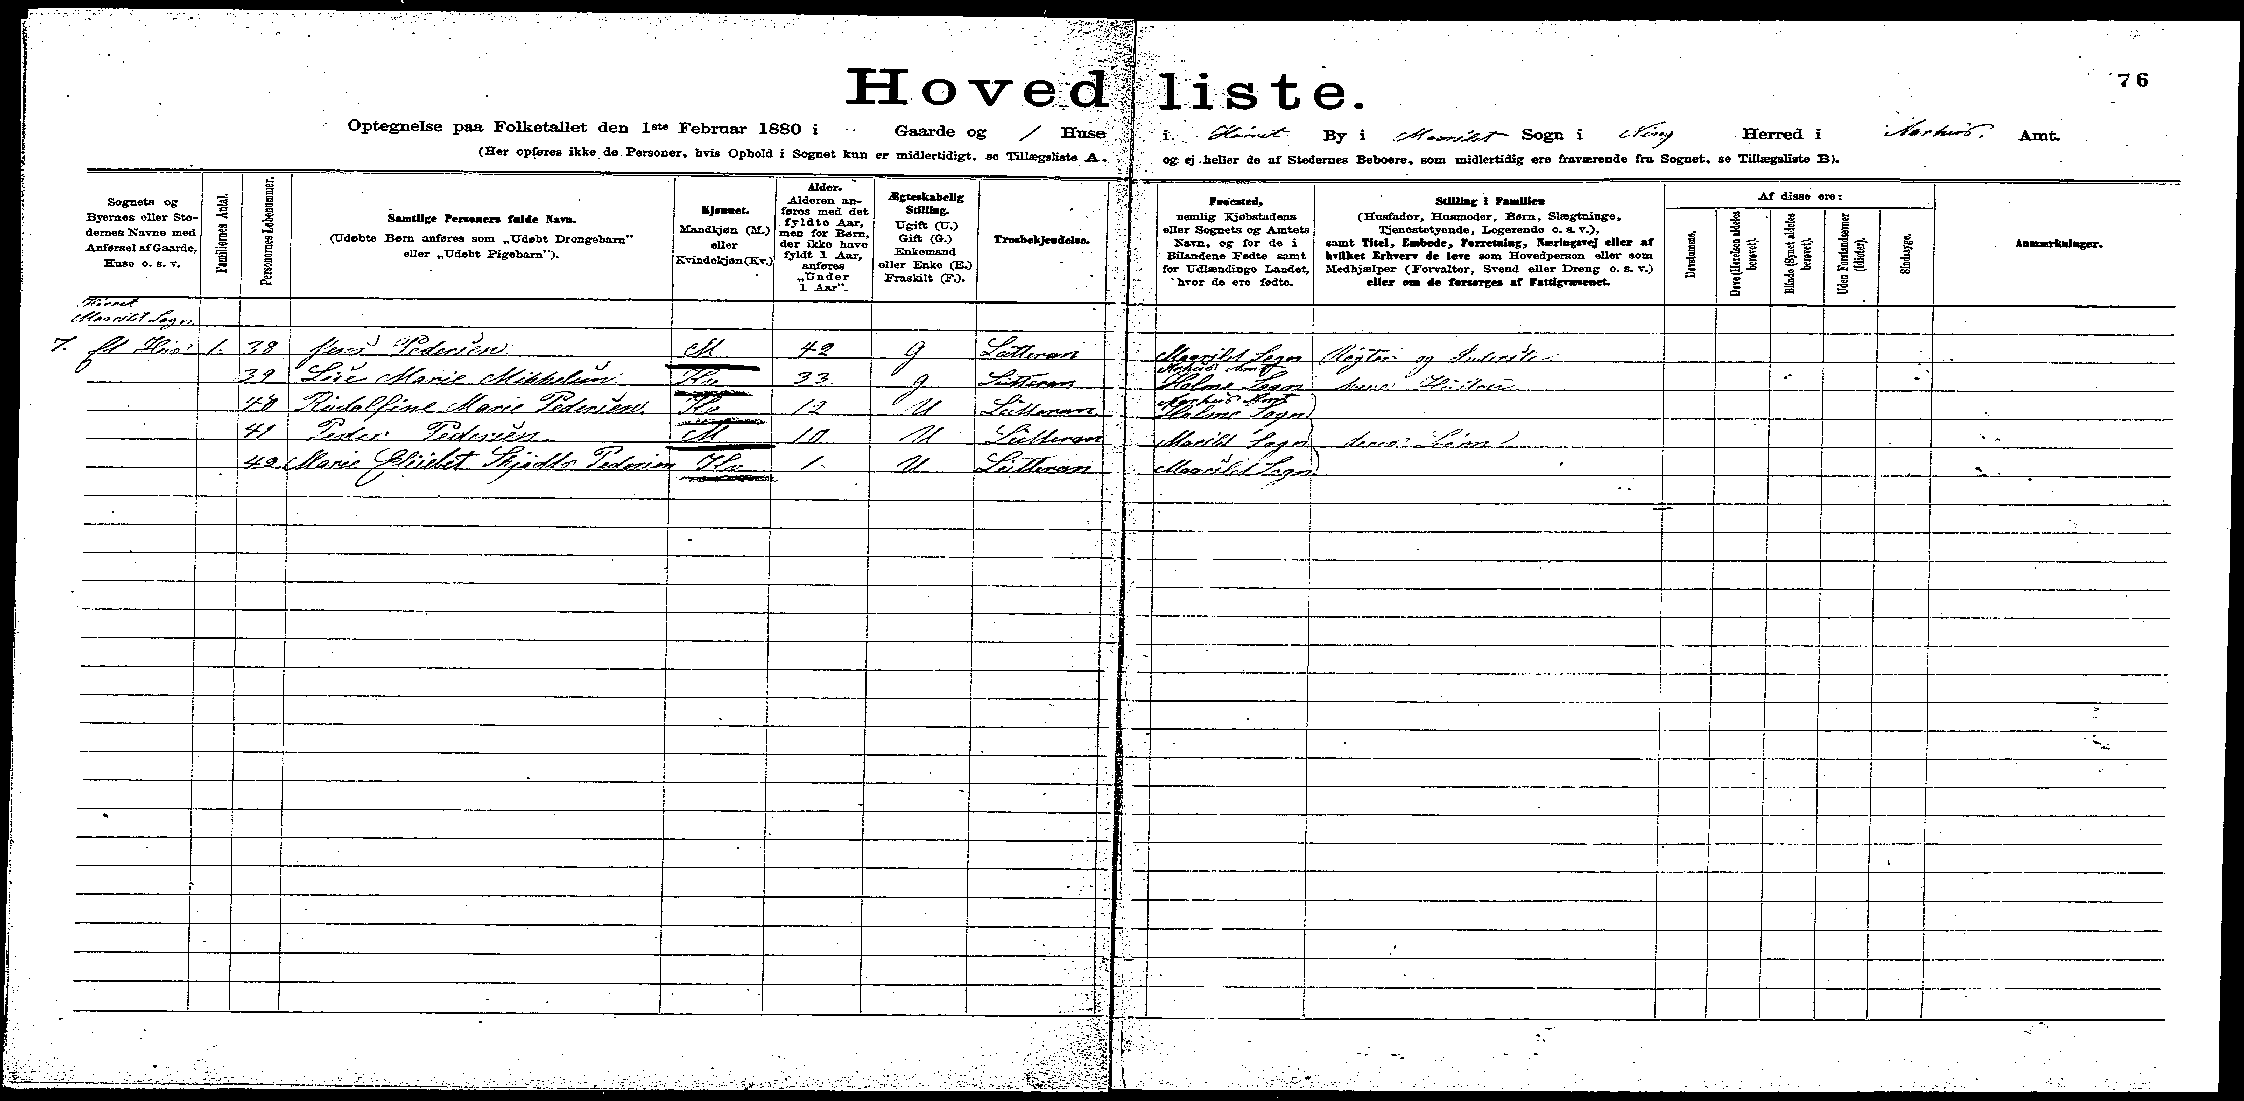 76
Hovedliste.
Optegnelse paa Folketallet den 1ste Februar 1880 i Gaarde og 1 Huse i By i Maarslet Sogn i Ning Herred i Aarhus Amt.
(Her opføres ikke de Personer, hvis Ophold i Sognet kun er midlertidigt, se Tillægsliste A. og ej heller de af Stedernes Beboere, som midlertidig ere fraværende fra Sognet, se Tillægsliste B).
Sognets og Byernes eller Stedernes Navne med Anførsel af Gaarde, Huse o. s. v.
Familiernes Antal.
Personernes Løbenummer.
Samtlige Personers fulde Navn.
(Udøbte Børn anføres som „Udøbt Drengebarn“
eller „Udøbt Pigebarn“).
Kjønnet.
Mandkjøn (M.)
eller
Kvindekjøn (Kv.)
Alder.
Alderen anføres med det fyldte Aar, men for Børn, der ikke have fyldt 1 Aar, anføres „Under 1 Aar“.
Ægteskabelig Stilling.
Ugift (U.)
Gift (G.)
Enkemand
eller Enke (E.)
Fraskilt (F.).
Trosbekjendelse.
Fødested,
nemlig Kjøbstadens eller Sognets og Amtets Navn, og for de i Bilandene Fødte samt for Udlændinge Landet, hvor de ere fødte.
Stilling i Familien
(Husfader, Husmoder, Børn, Slægtninge, Tjenestetyende, Logerende o. s. v.),
samt Titel, Embede, Forretning, Næringsvej eller af hvilket Erhverv de leve som Hovedperson eller som Medhjælper (Forvalter, Svend eller Dreng o. s. v.)
eller om de forsørges af Fattigvæsenet.
Af disse ere:
Døvstumme.
Døve (Hørelsen aldeles berøvet).
Blinde (Synet aldeles berøvet).
Uden Forstandsevner (Idioter).
Sindssyge.
Anmærkninger.
Maarslet Sogn
7. Et Hus 1. 38 Jens Pedersen M 42 G Lutteran Maarslet Sogn Røgter og
39 Marie Mikkelsen Kv 33 G Lutteran Aarhus Amt Holme Sogn hans Hustru
40 Rudolfine Marie Pedersen Kv 12 U Lutteran Aarhus Amt Holme Sogn
41 Peder Pedersen M 10 U Lutteran Marslet Sogn deres Børn
42 Marie Elisebet Skjødts Pedersen Kv 1 U Lutteran Maarslet Sogn